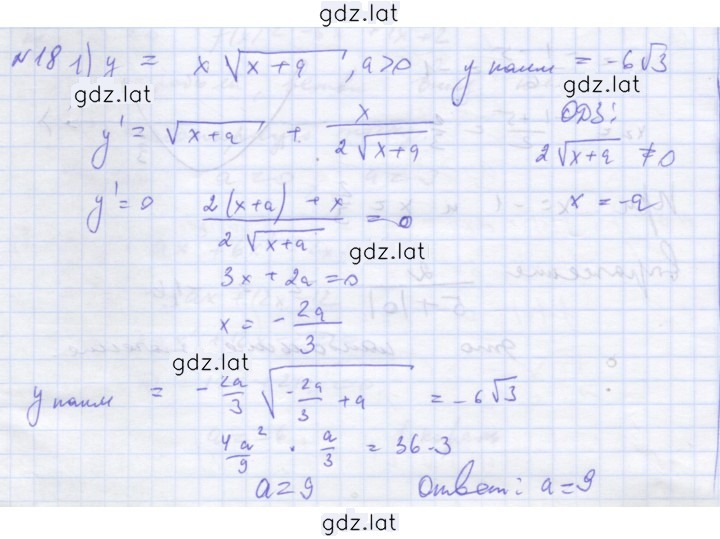 gdz.lat
№18 1) y = x √(x+a), a>0 y наим = -6√3
gdz.lat gdz.lat
y' = √(x+a) + x/(2√(x+a)) ОДЗ:
2√(x+a) ≠0
y'=0 (2(x+a) + x)/(2√(x+a)) = 0 x = -a
gdz.lat
3x + 2a = 0
x = - 2a/3
gdz.lat
y наим = - 2a/3 √(-2a/3 + a) = -6√3
4a²/9 · a/3 = 36·3
a=9 Ответ: a=9
gdz.lat